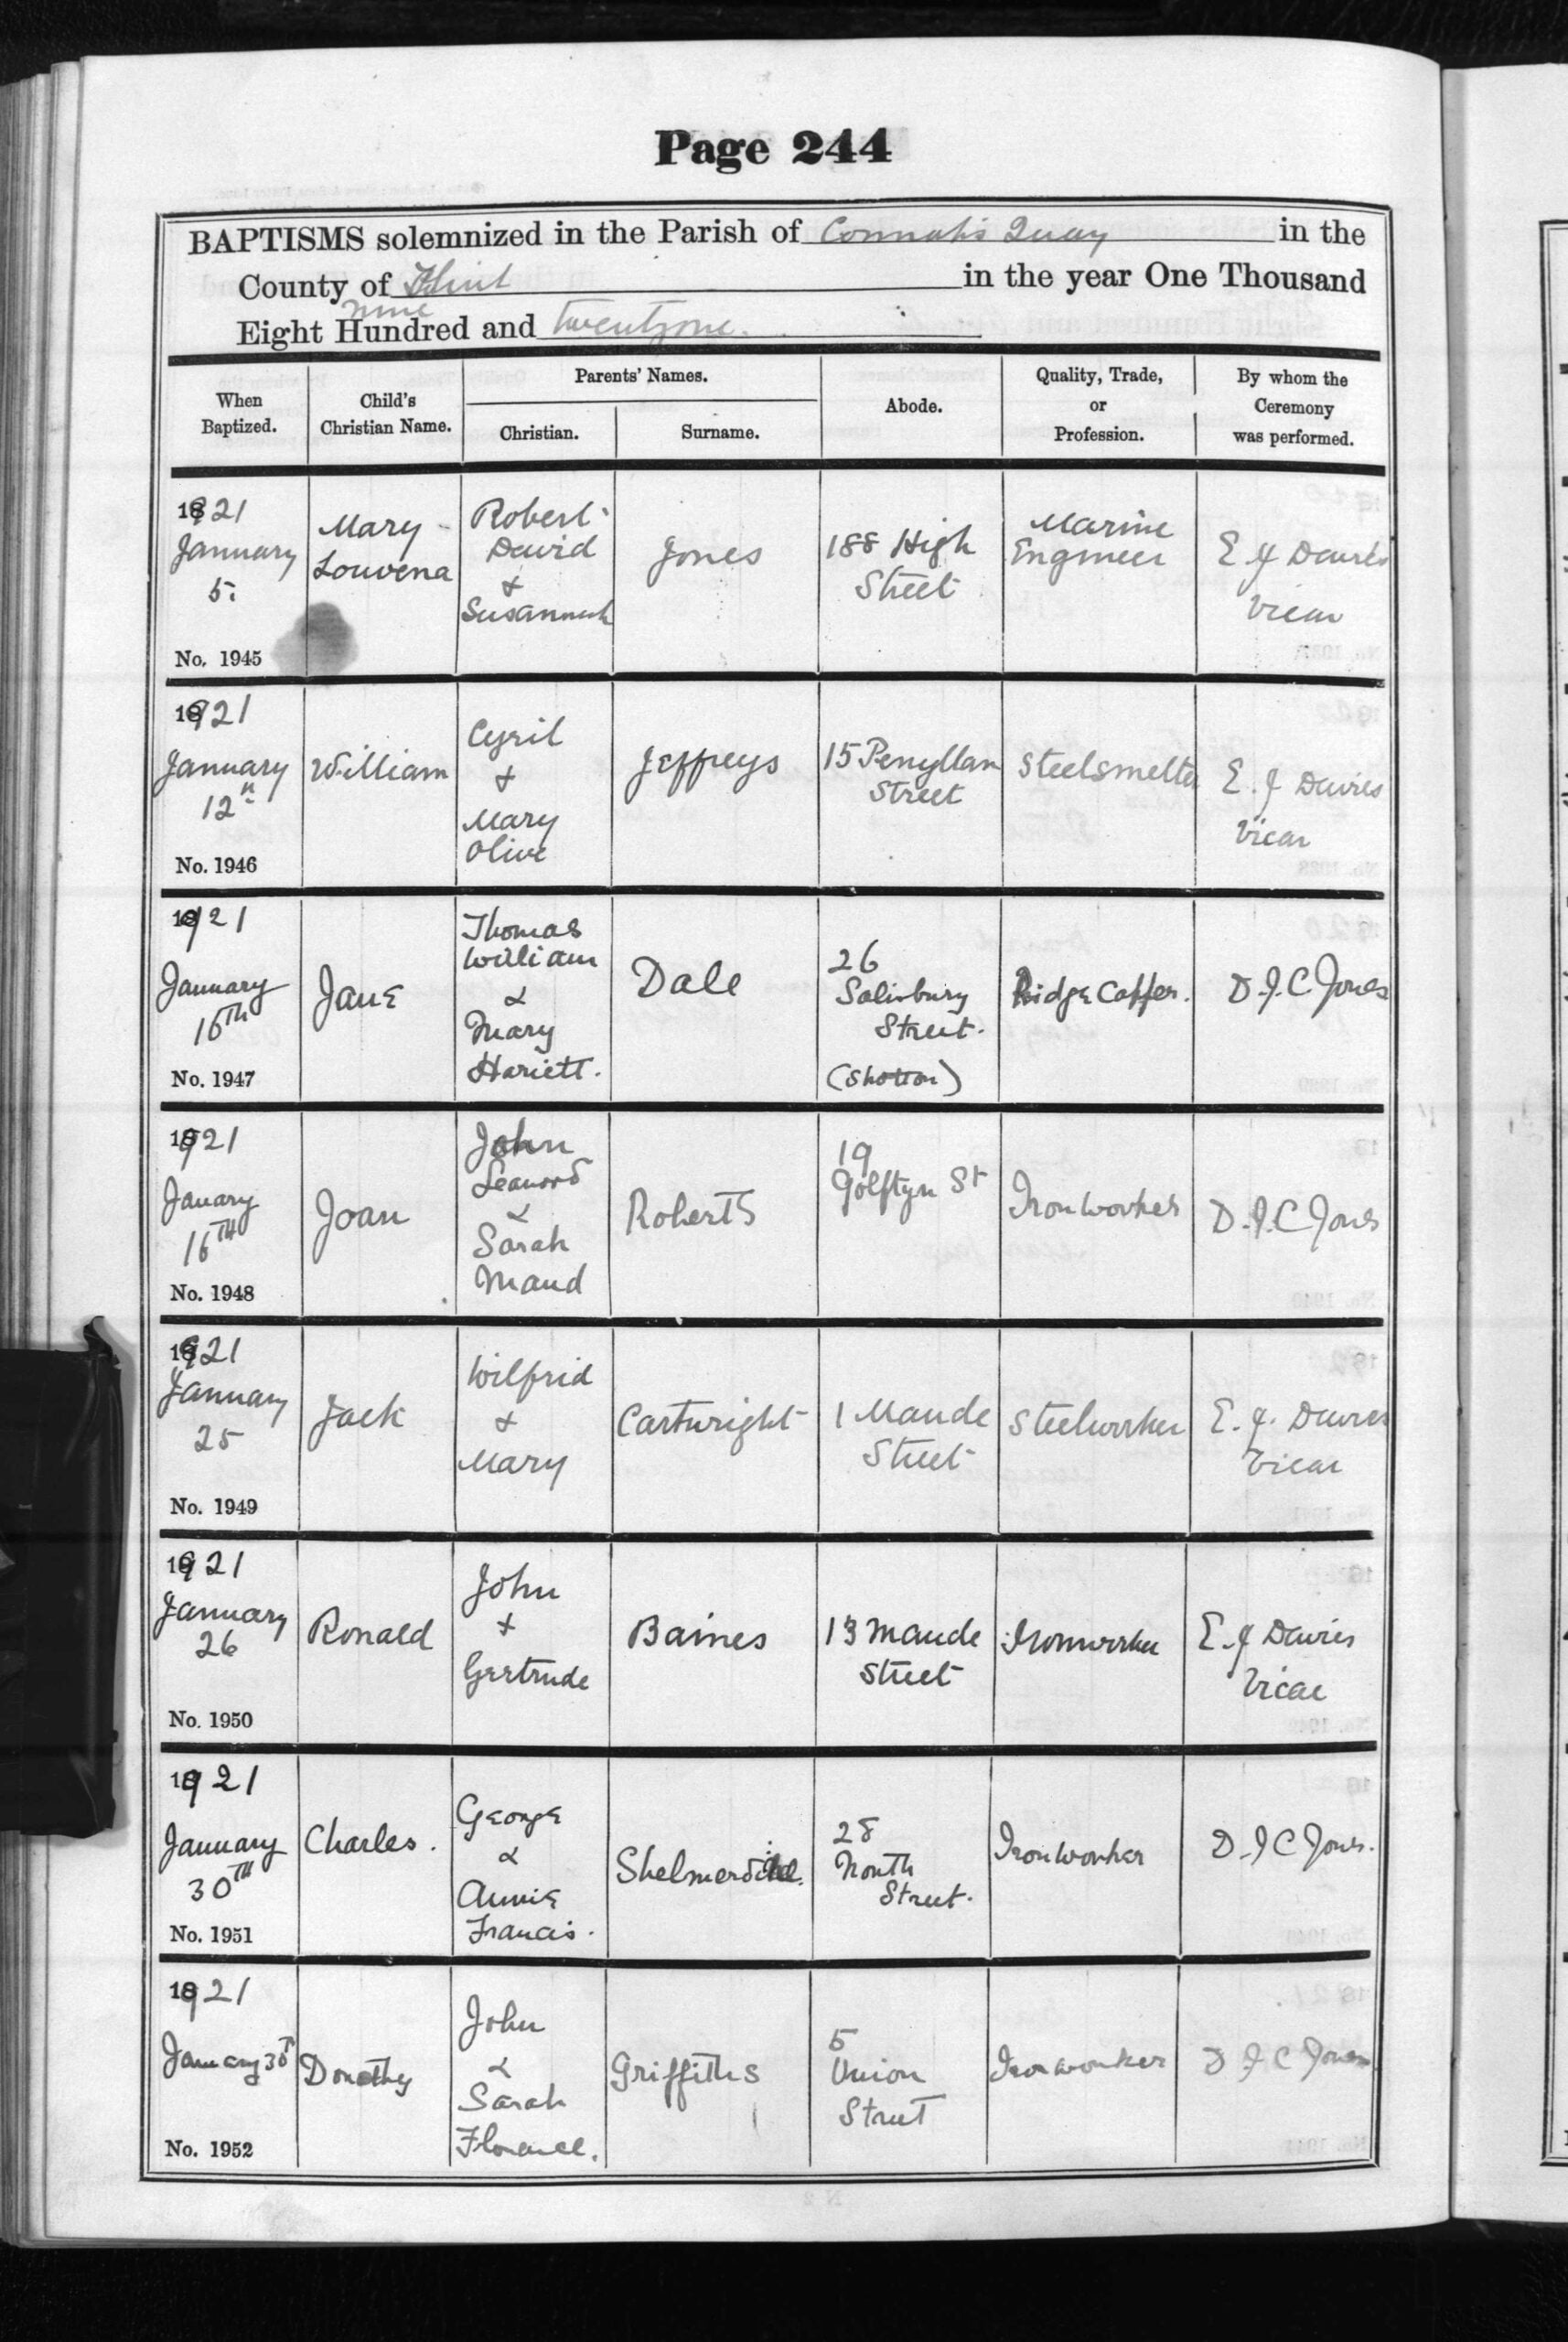 Page 244
BAPTISMS solemnized in the Parish of Connah's Quay in the
County of Flint in the year One Thousand
nine
Eight Hundred and twentyone.
When Baptized.
Child's Christian Name.
Parents' Names.
Christian.
Surname.
Abode.
Quality, Trade, or Profession.
By whom the Ceremony was performed.
1921
January
5.
No. 1945
Mary
Louvena
Robert
David
&
Susannah
Jones
188 High
Street
Marine
Engineer
E J Davies
Vicar
1921
January
12th
No. 1946
William
Cyril
&
Mary
Olive
Jeffreys
15 Penyllan
Street
Steelsmelter
E. J Davies
Vicar
1921
January
16TH
No. 1947
Jane
Thomas
William
&
Mary
Hariett.
Dale
26
Salisbury
Street.
(Shotton)
Ridge Capper.
D.J.C Jones
1921
Jauary
16TH
No. 1948
Joan
John
&
Sarah
Maud
Roberts
19
Golftyn St
Ironworker
D.J.C Jones
1921
January
25
No. 1949
Jack
Wilfrid
&
Mary
Cartwright
1 Maude
Street
Steelworker
E. J. Davies
Vicar
1921
January
26
No. 1950
Ronald
John
&
Gertrude
Baines
13 Maude
Street
Ironworker
E. J Davies
Vicar
1921
January
30TH
No. 1951
Charles.
George
&
Annie
Francis.
28
North
Street.
Ironworker
D.J C Jones.
1921
January 30T
No. 1952
Dorothy
John
&
Sarah
Florence.
Griffiths
5
Union
Street
Ironworker
D J C Jones